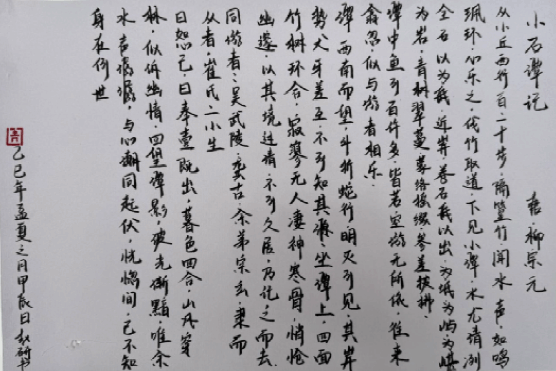 小石潭记 柳宗元
从小丘西行百二十步，隔篁竹，闻水声，如鸣
珮环，心乐之。伐竹取道，下见小潭，水尤清冽
全石以为底，近岸，卷石底以出，为坻为屿为嵁
为岩，青树翠蔓，蒙络摇缀，参差披拂
潭中鱼可百许头，皆若空游无所依，往来
翕忽，似与游者相乐
潭西南而望，斗折蛇行，明灭可见，其岸
势犬牙差互，不可知其源。坐潭上，四面
竹树环合，寂寥无人，凄神寒骨，悄怆
幽邃，以其境过清，不可久居，乃记之而去
同游者，吴武陵，龚古，余弟宗玄，隶而
从者崔氏二小生
曰恕己，曰奉壹，既出，暮色四合，山风穿
林，似诉幽情，回望潭影，波光渐黯，唯余
水声潺潺，与心潮同起伏，恍惚间，已不知
身在何世
乙巳年孟夏之月甲辰日